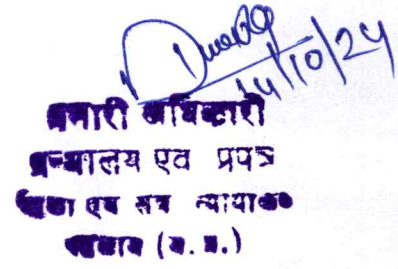 14/10/24
प्रभारी अधिकारी
ग्रन्थालय एवं प्रपत्र
जिला एवं सत्र न्यायालय
(म. प्र.)